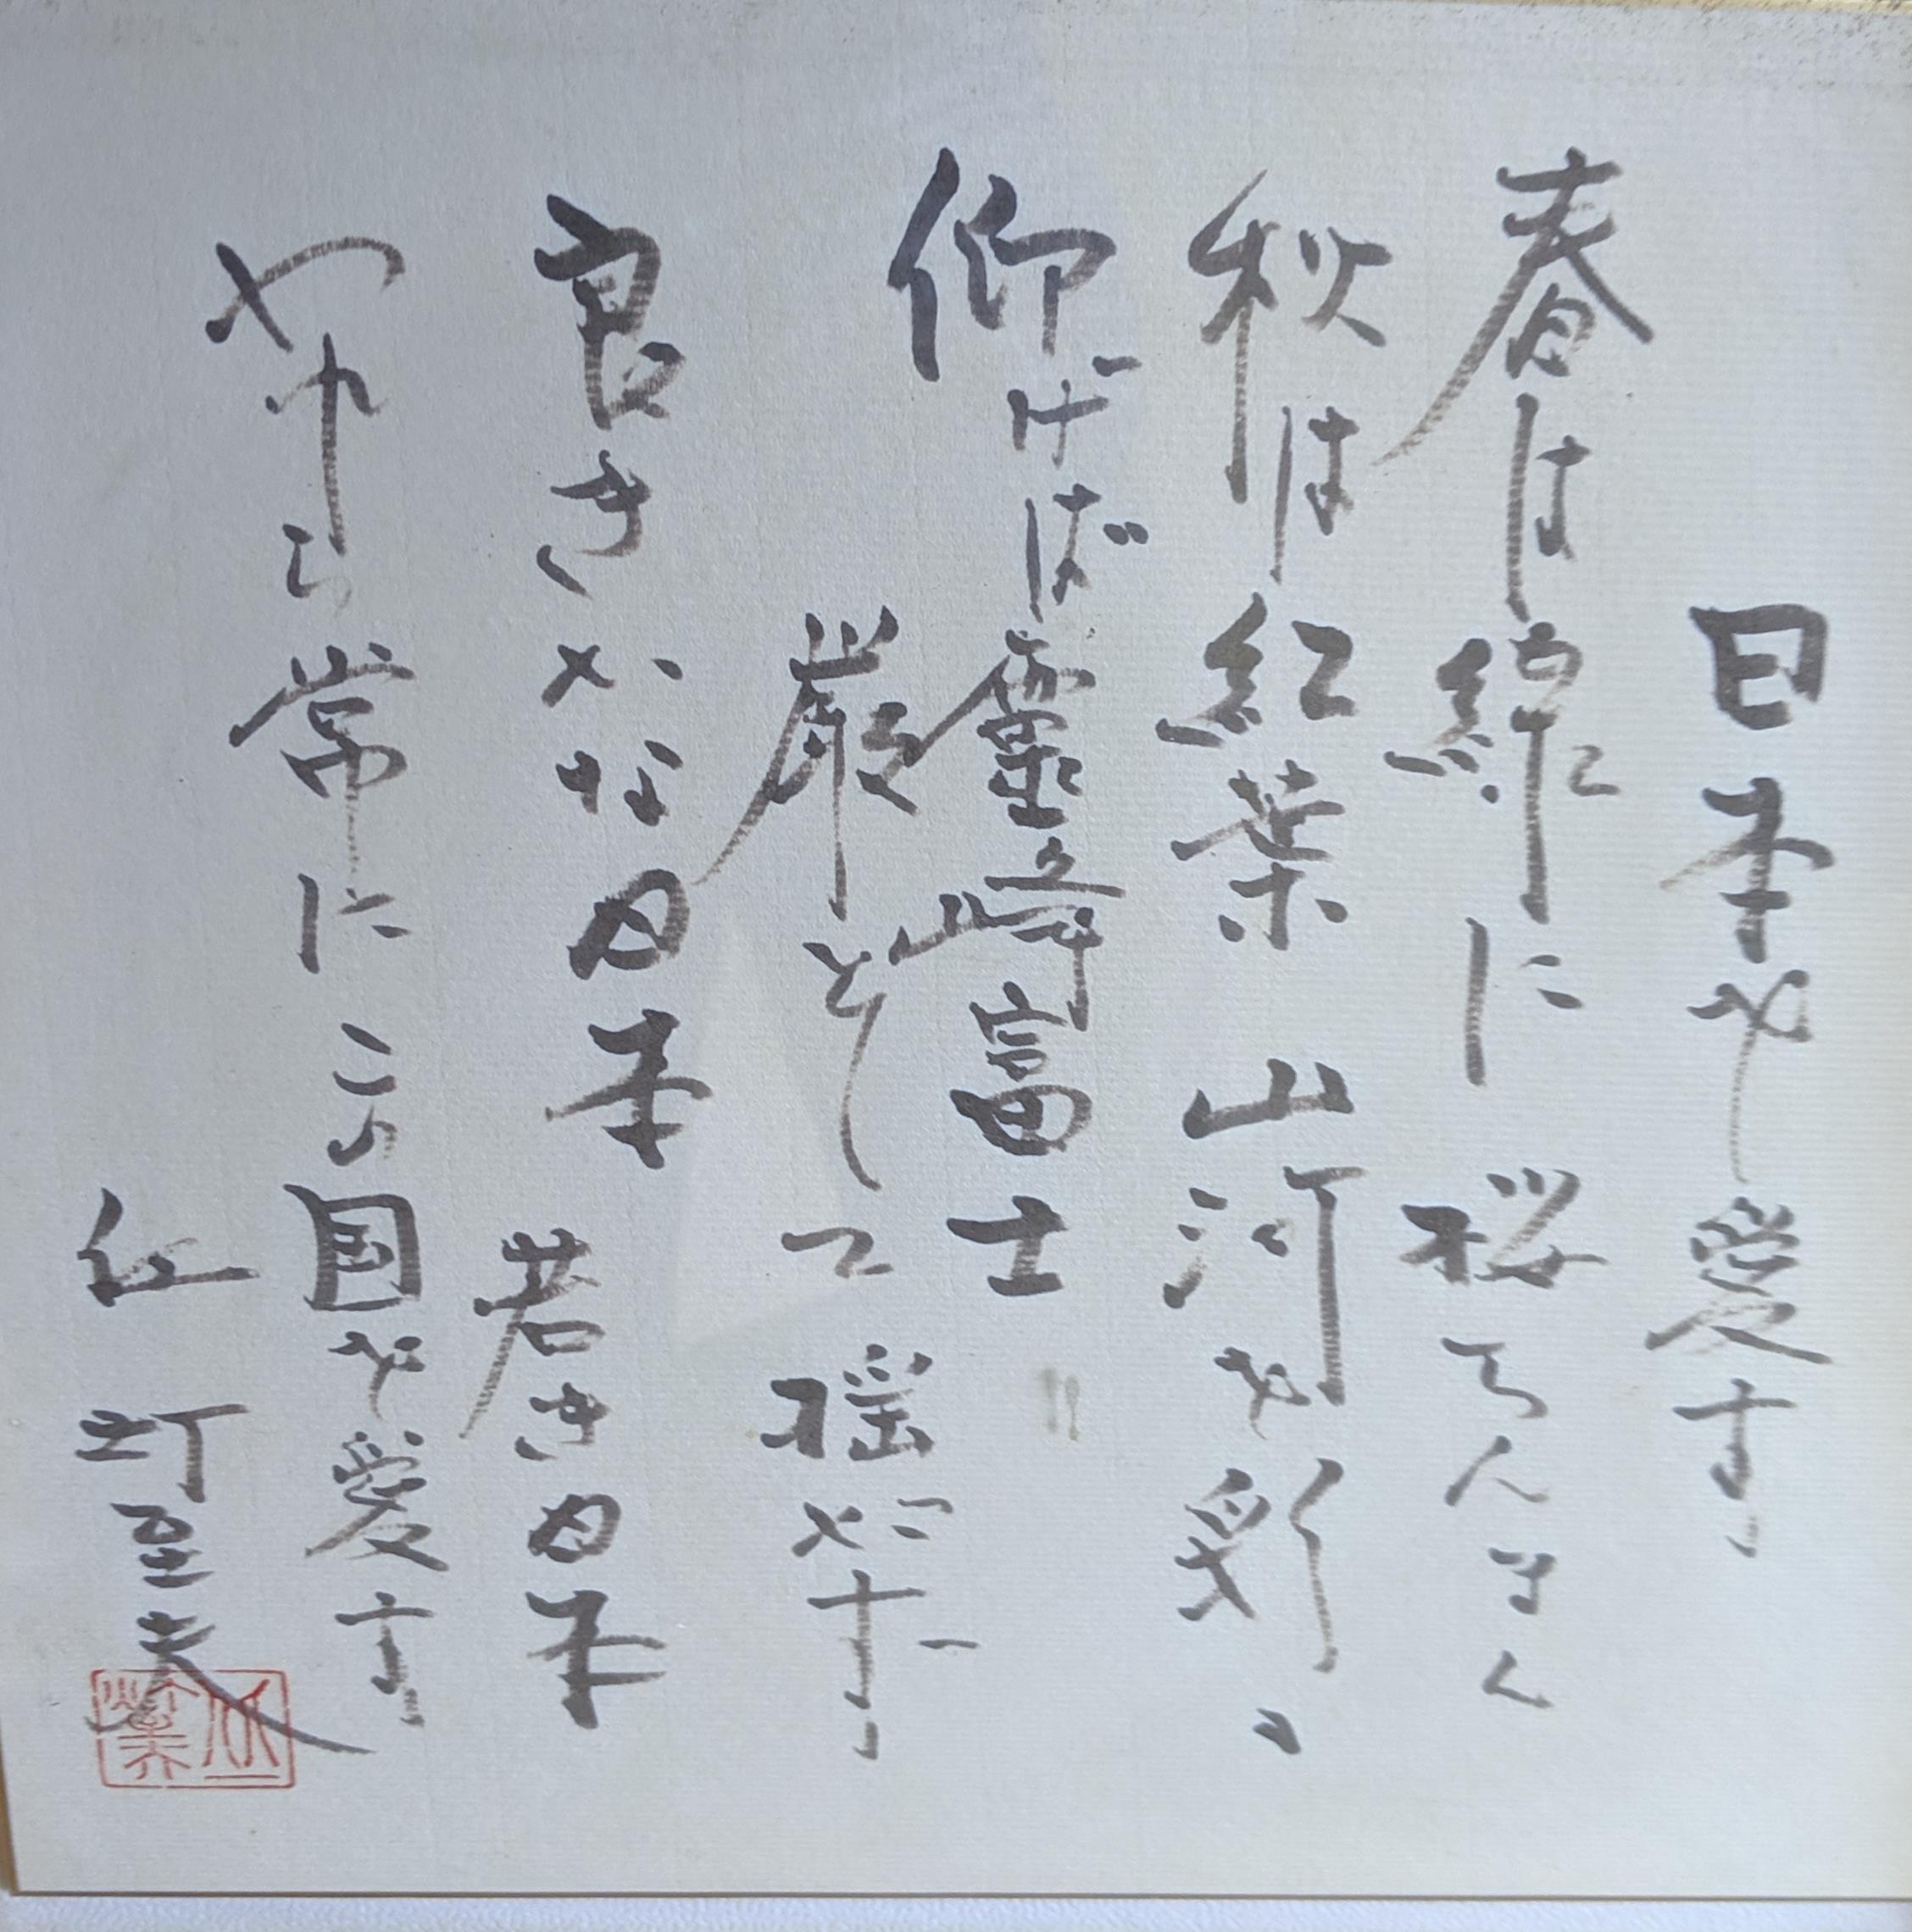 日本を愛す
春は に 桜らんまん
秋は紅葉 山河を彩る
仰げば靈峰富士
厳として 揺がず
良きかな日本 若き日本
われら常にこの国を愛す
丘 灯至夫